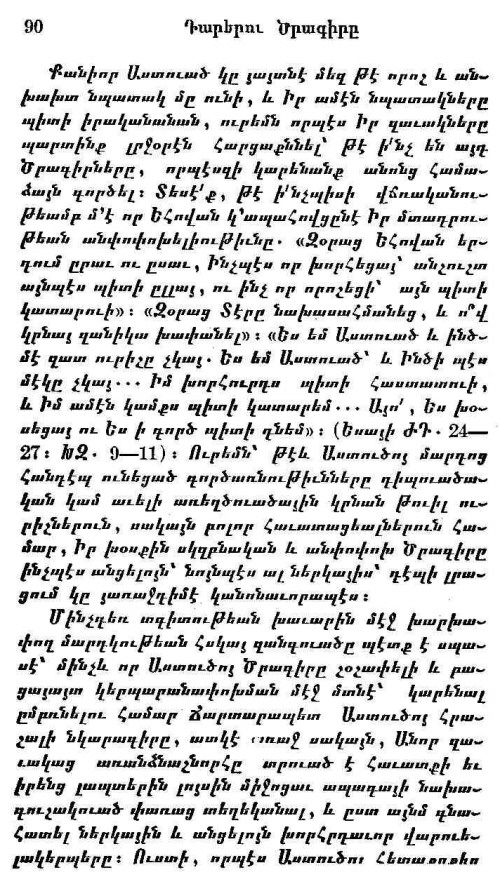 90 Դարերու Ծրագիրը
Քանիոր Աստուած կը յայտնէ մեզ թէ որոշ և ան-
խախտ նպատակ մը ունի, և Իր ամէն նպատակները
պիտի իրականանան, ուրեմն որպէս Իր զաւակները
պարտինք լրջօրէն հարցաքննել՝ թէ ի՛նչ են այդ
Ծրագիրները, որպէսզի կարենանք անոնց համա-
ձայն գործել: Տեսէ՛ք, թէ ի՛նչպիսի վճռականու-
թեամբ մ’է որ Եհովան կ’ապահովցընէ Իր մտադրու-
թեան անփոփոխելիութիւնը. «Զօրաց Եհովան եր-
դում ըրաւ ու ըսաւ, Ինչպէս որ խորհեցայ՝ անշուշտ
այնպէս պիտի ըլլայ, ու ինչ որ որոշեցի՝ այն պիտի
կատարուի»: «Զօրաց Տէրը նախասահմանեց, և ո՞վ
կրնայ զանիկա խափանել»: «Ես եմ Աստուած և ինծ-
մէ զատ ուրիշը չկայ. Ես եմ Աստուած՝ և Ինծի պէս
մէկը չկայ... Իմ խորհուրդս պիտի հաստատուի,
և Իմ ամէն կամքս պիտի կատարեմ... Այո՛, Ես խօ-
սեցայ ու Ես ի գործ պիտի դնեմ»: (Եսայի ԺԴ. 24—
27: ԽԶ. 9—11): Ուրեմն՝ թէև Աստուծոյ մարդոց
հանդէպ ունեցած գործառնութիւնները դիպուածա-
կան կամ աւելի առեղծուածային կրնան թուիլ ու-
րիշներուն, սակայն բոլոր հաւատացեալներուն հա-
մար, Իր խօսքին սկզբնական և անփոփոխ Ծրագիրը
ինչպէս անցելոյն՝ նոյնպէս ալ ներկայիս՝ դէպի լրա-
ցում կը յառաջդիմէ կանոնաւորապէս:
Մինչդեռ տգիտութեան խաւարին մէջ խարխա-
փող մարդկութեան հսկայ զանգուածը պէտք է սպա-
սէ՝ մինչև որ Աստուծոյ Ծրագիրը չօշափելի և բա-
ցայայտ կերպարանափոխման մէջ մտնէ՝ կարենալ
ըմբռնելու համար Ճարտարապետ Աստուծոյ հրա-
շալի նկարագիրը, ատկէ առաջ սակայն, Անոր զա-
ւակաց առանձնաշնորհը տրուած է հաւատքի եւ
իրենց լապտերին լոյսին միջոցաւ ապագայի նախա-
գուշակուած փառաց տեղեկանալ, և ըստ այնմ գնա-
հատել ներկային և անցելոյն խորհրդաւոր վարուե-
լակերպերը: Ուստի, որպէս Աստուծոյ հետաքրքիր